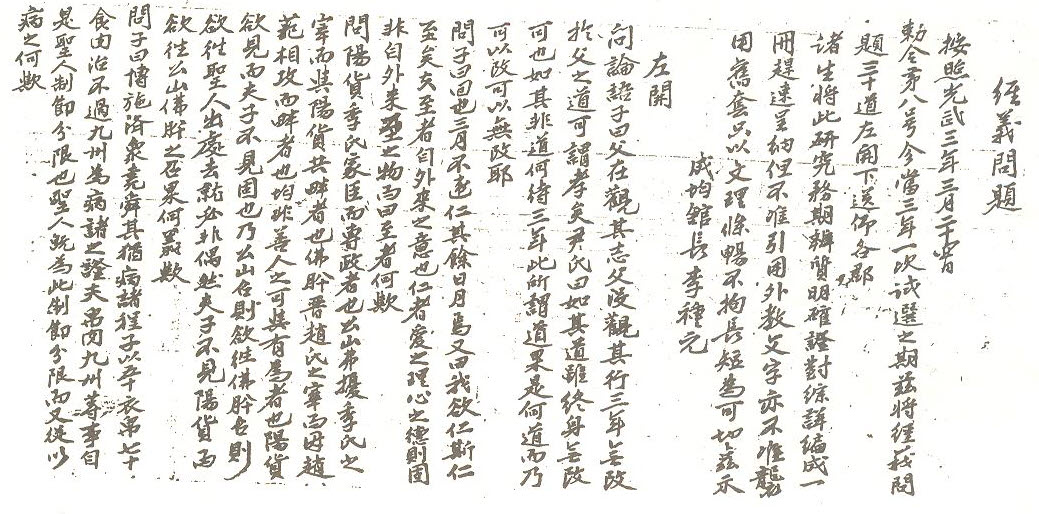 經義問題
按照光武三年三月二十四日
勅令第八号今當三年一次試選之期茲將經義問
題三十道左開下送仰各郡
諸生將此研究務期辨質明確證對綜詳編成一
冊趕速呈納但不准引用外敎文字亦不准襲
用舊套只以文理條暢不拘長短為可切茲示
成均館長李種元
左開
問論語子曰父在觀其志父沒觀其行三年無改
於父之道可謂孝矣尹氏曰如其道雖終身無改
可也如其非道何待三年此所謂道果是何道而乃
可以改可以無改耶
問子曰回也三月不違仁其餘日月焉又曰我欲仁斯仁
至矣夫至者自外來之意也仁者愛之理心之德則固
非自外來之物而曰至者何歟
問陽貨季氏家臣而專政者也公山弗擾季氏之
宰而與陽貨共畔者也佛肸晉趙氏之宰而因趙
范相攻而畔者也均非善人之可與有為者也陽貨
欲見而夫子不見固也乃公山召則欲往佛肸召則
欲往聖人出處去就必非偶然夫子不見陽貨而
欲往公山佛肸之召果何義歟
問子曰博施濟衆堯舜其猶病諸程子以五十衣帛七十
食肉治不過九州為病諸之證夫帛肉九州等事自
是聖人制節分限也聖人旣為此制節分限而又從以
病之何歟